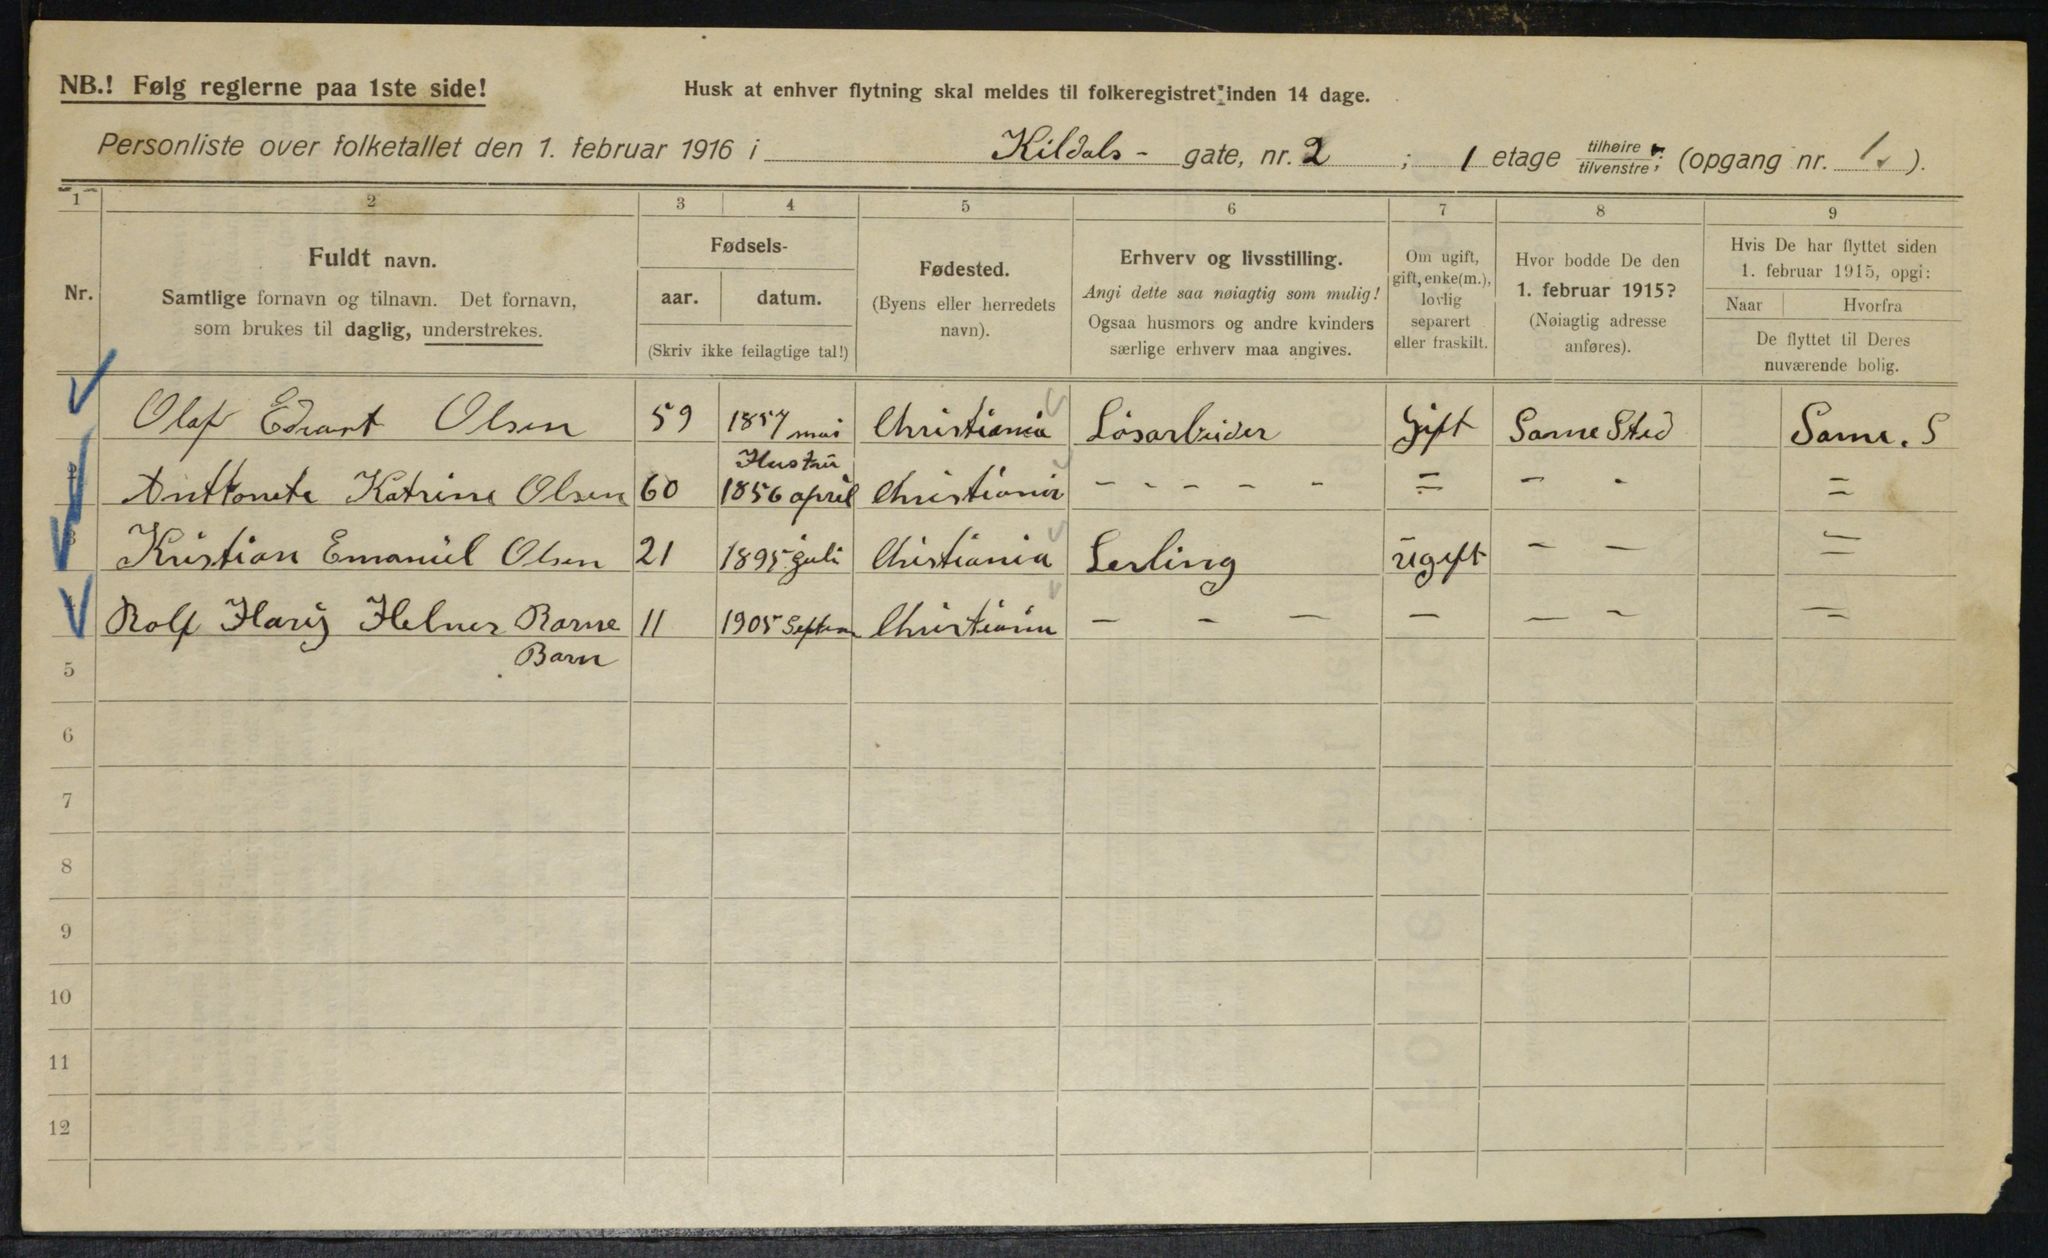 NB.! Følg reglerne paa 1ste side!
Husk at enhver flytning skal meldes til folkeregistret inden 14 dage.
Personliste over folketallet den 1. februar 1916 i Kildals - gate, nr. 2 ; 1 etage tilhøire / tilvenstre ; (opgang nr. 1.).
1 2 3 4 5 6 7 8 9
Nr.
Fuldt navn.
Samtlige fornavn og tilnavn. Det fornavn,
som brukes til daglig, understrekes.
Fødsels-
aar. datum.
(Skriv ikke feilagtige tal!)
Fødested.
(Byens eller herredets
navn).
Erhverv og livsstilling.
Angi dette saa nøiagtig som mulig!
Ogsaa husmors og andre kvinders
særlige erhverv maa angives.
Om ugift,
gift, enke(m.),
lovlig
separert
eller fraskilt.
Hvor bodde De den
1. februar 1915?
(Nøiagtig adresse
anføres).
Hvis De har flyttet siden
1. februar 1915, opgi:
Naar Hvorfra
De flyttet til Deres
nuværende bolig.
Olaf Edvart Olsen 59 1857 mai Christiania Løsarbeider Gift Samme Sted Samme. S
Hustru
Anttonete Katrine Olsen 60 1856 april Christiania - - - - - = - - =
Kristian Emanuel Olsen 21 1895 juli Christiania Lerling Ugift - - =
Rolf Harij Helmer 11 1905 Septem Christiania - - - - - - =
Barn
5
6
7
8
9
10
11
12